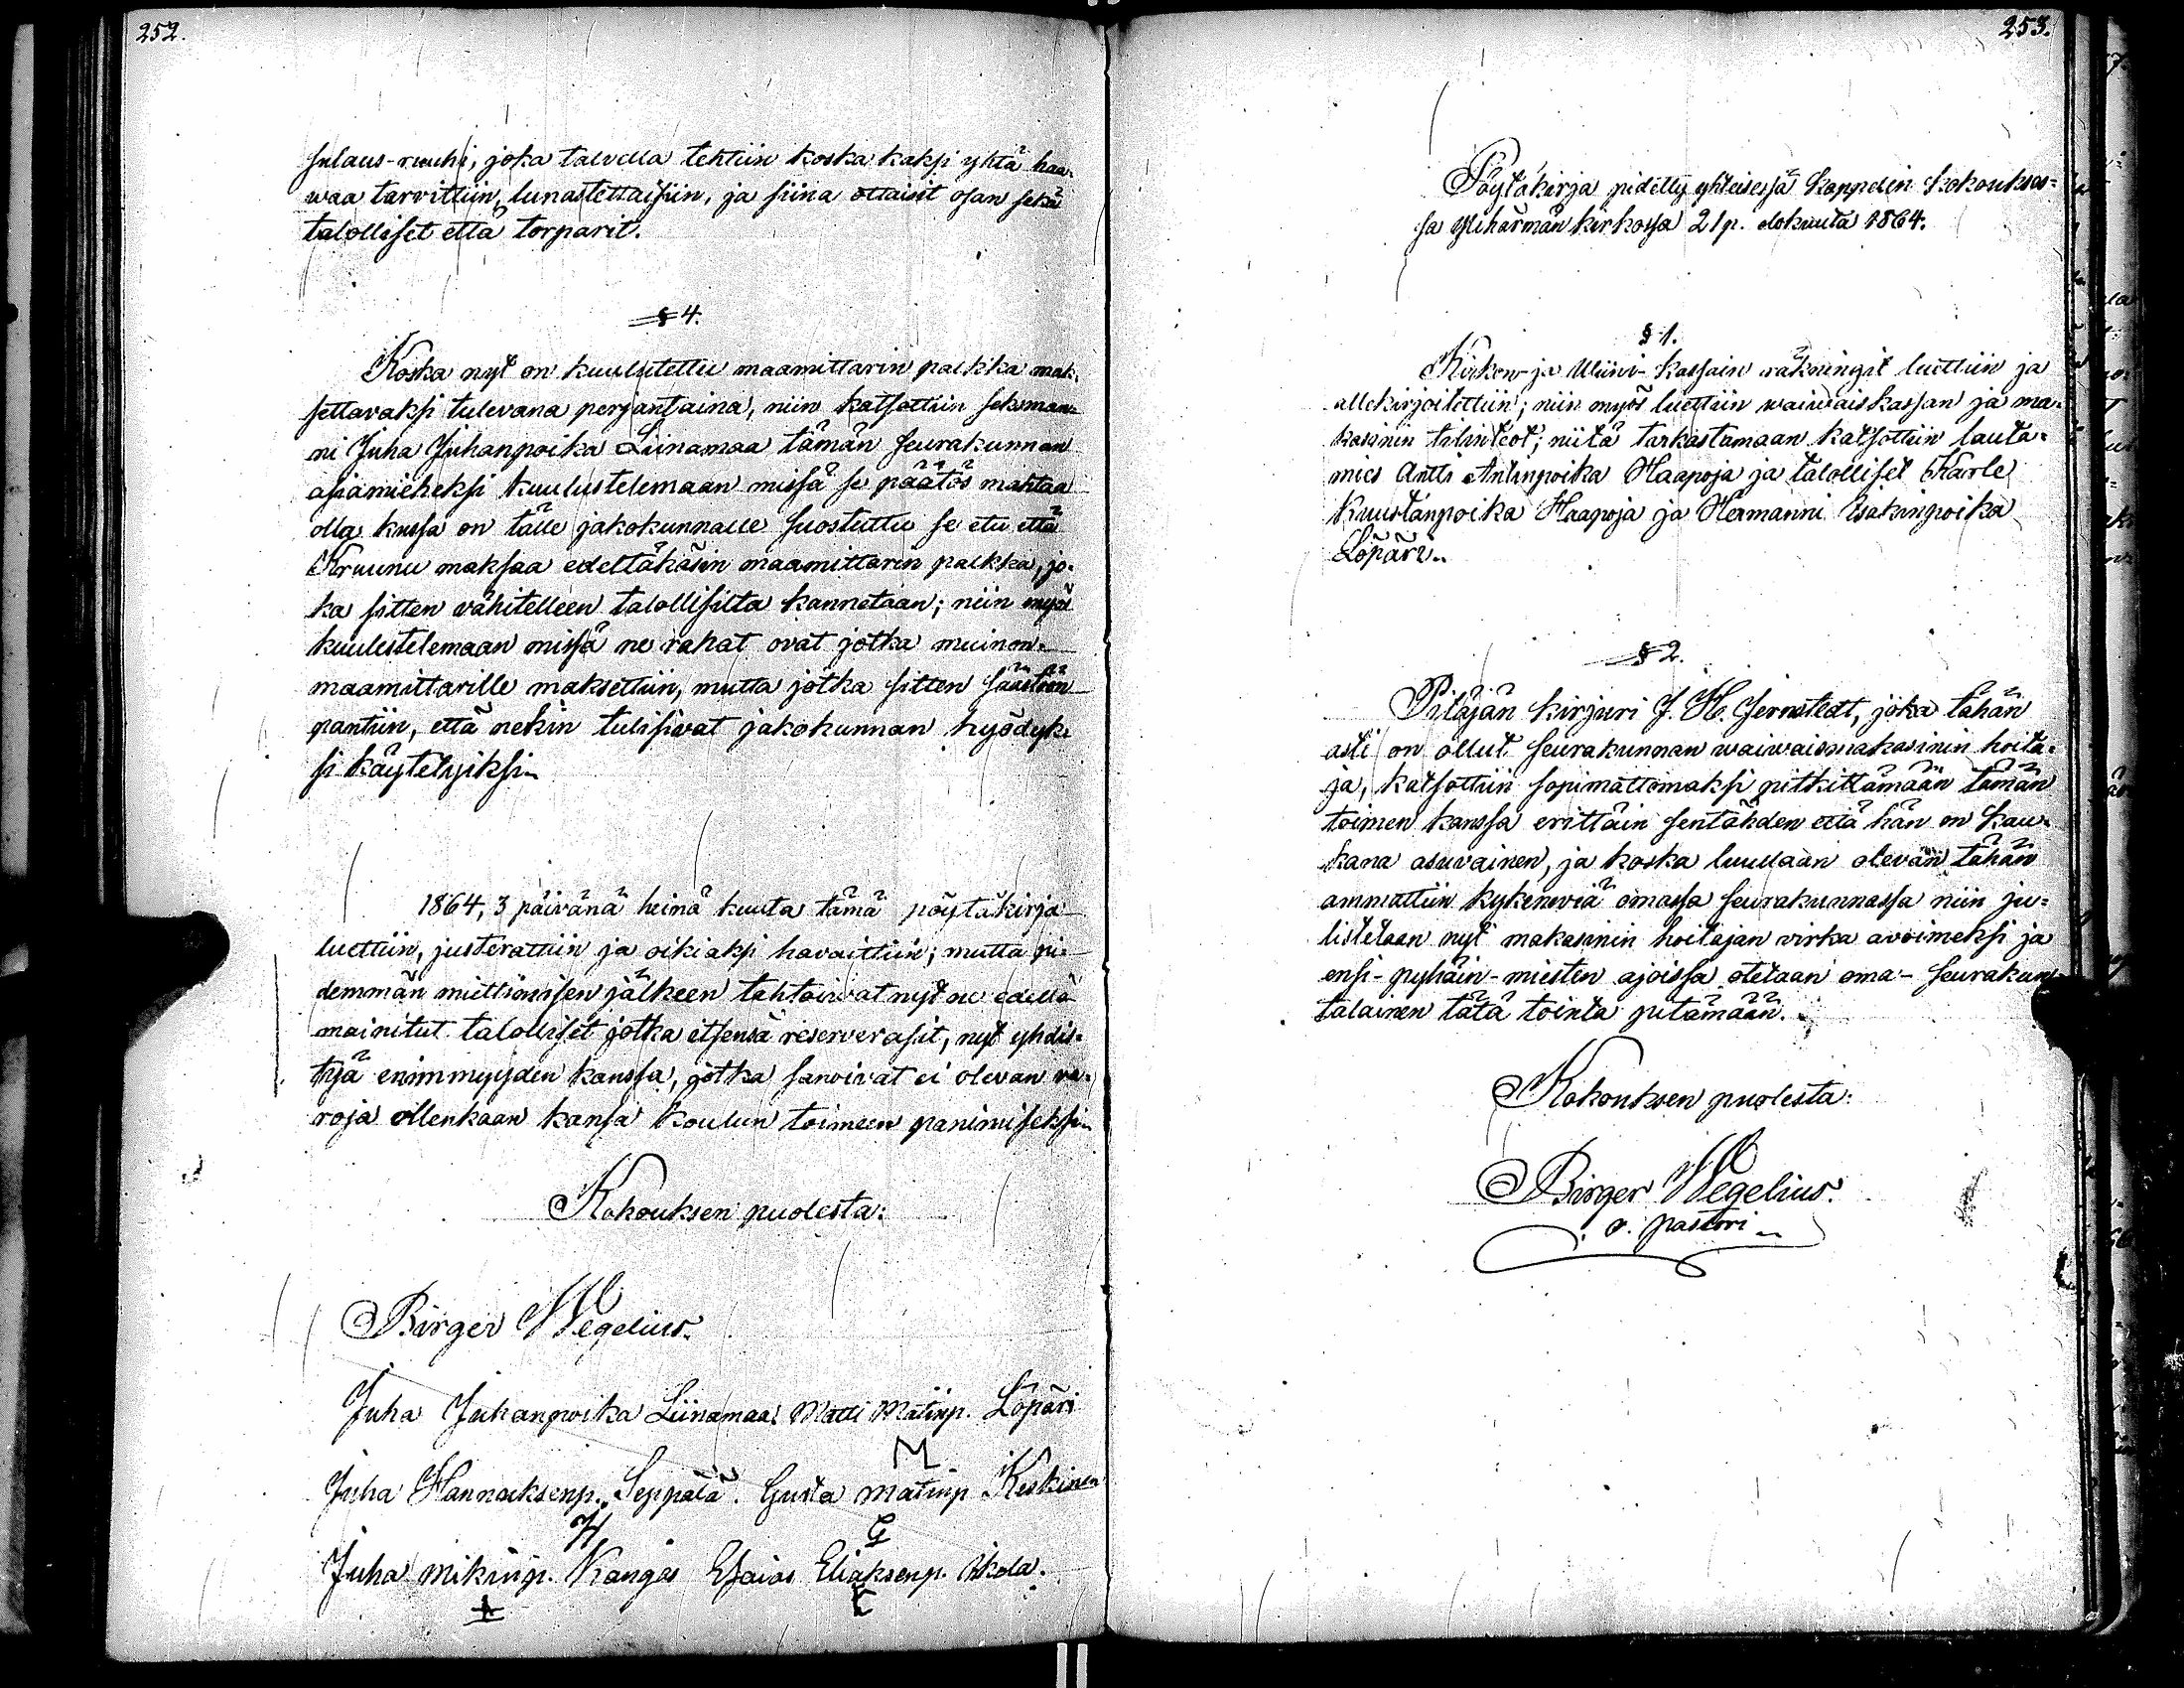 252.
sulaus-ruuhi, joka talvella tehtiin koska kaksi yhtä haa-
waa tarvittiin, lunastettaisiin, ja siinä ottaisit osan sekä
talolliset että torparit.
§ 4.
Koska nyt on kuulutettu maamittarin palkka mak-
settavaksi tulevana perjantaina, niin katsottiin seksman-
ni Juha Juhanpoika Liinamaa tämän seurakunnan
asiamieheksi kuulustelemaan missä se päätös mahtaa
olla kussa on tälle jakokunnalle suostuttu se etu että
Kruunu maksaa edeltäkäsin maamittarin palkka, jo-
ka sitten vähitelleen talollisilta kannetaan; niin myös
kuulestelemaan missä ne rahat ovat jotka muinon
maamittarille maksettiin, mutta jotka sitten säästöön
pantiin, että nekin tulisivat jakokunnan hyödyk-
si käytetyiksi.
1864, 3 päivänä heinä kuuta tämä pöytäkirja
luettiin, justerattiin ja oikiaksi havaittiin; mutta pi-
demmän miettimisen jälkeen tahtoivat nyt ne edellä
mainitut talolliset jotka itsensä reserverasit, nyt yhdis-
tyä enimmyyden kanssa, jotka sanoivat ei olevan va-
roja ollenkaan kansa koulun toimeen panimiseksi.
Kokouksen puolesta:
Birger Wegelius.
Juha Juhanpoika Liinamaa Matti Matinp. Löpäri
M
Juha Hannuksenp. Seppälä. Gusta Matinp Keskinen
H G
Juha Mikinp. Kangas Esaias Eliaksenp. Ikola.
E
253.
Pöytäkirja pidetty yhteisessä Kappelin kokoukses-
sa Yliharmän kirkossa 21 p. elokuuta 1864.
§ 1.
Kirkon- ja Wiini- kassain räkningit luettiin ja
allekirjoitettiin; niin myös luettiin waiwaiskassan ja ma-
kasinin tilinteot; niitä tarkastamaan katsottiin lauta-
mies Antti Antinpoika Haapoja ja talolliset Karle
Kuustanpoika Haapoja ja Hermanni Isakinpoika
Löpäri.
§ 2.
Pitäjän kirjuri J. H. Jernstedt, joka tähän
asti on ollut seurakunnan waiwaismakasinin hoita-
ja, katsottiin sopimattomaksi pitkittämään tämän
toimen kanssa erittäin sentähden että hän on kau-
kana asuvainen, ja koska luullaan olevan tähän
ammattiin kykeneviä omassa seurakunnassa niin ju-
listetaan nyt makasinin hoitajan virka avoimeksi ja
ensi- pyhäin- miesten ajoissa otetaan oma- seurakun-
talainen tätä tointa pitämään.
Kokouksen puolesta:
Birger Wegelius.
v. pastori